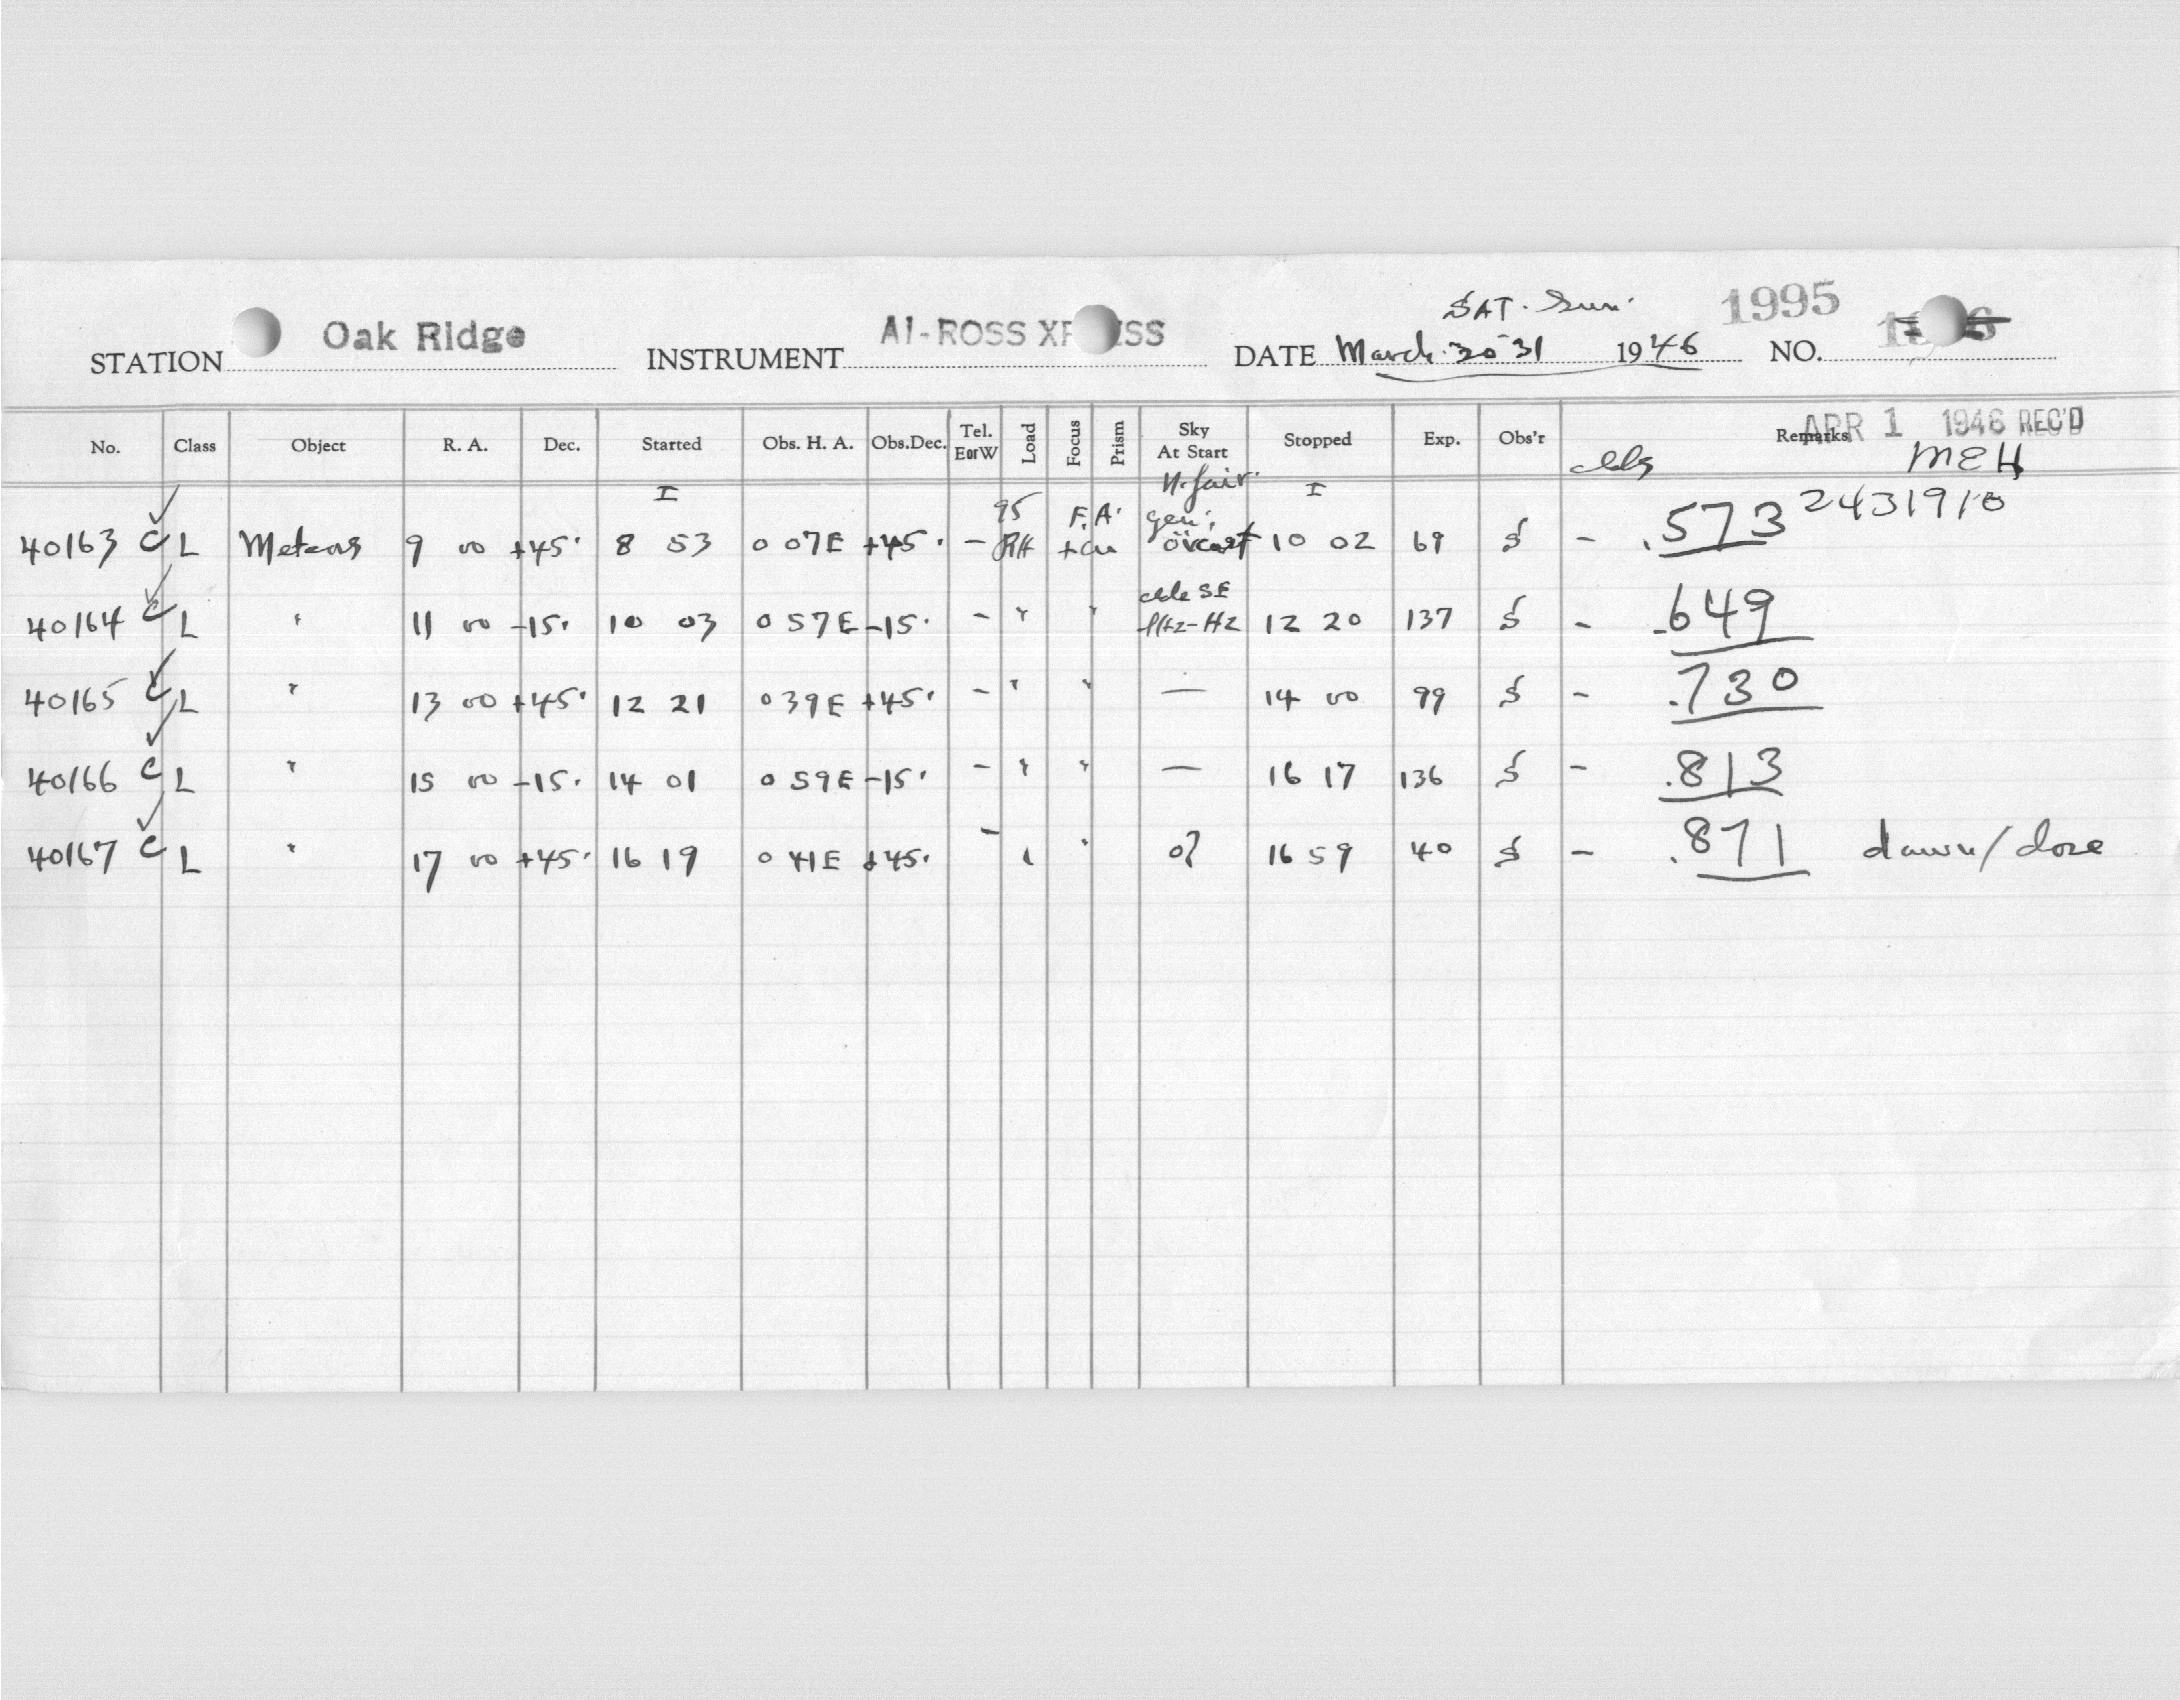 SAT. Sun. 1995
STATION Oak Ridge INSTRUMENT AI-ROSS XP ESS DATE March 30 31 1946 NO.
No. Class Object R. A. Dec. Started Obs. H. A. Obs.Dec. Tel. E or W Load Focus Prism Sky At Start Stopped Exp. Obs'r Remarks
APR 1 1946 REC'D
clds MEH
I n. fair. I
40163 C L Meteors 9 00 +45° 8 53 0 07E +45° - 95 RH F.A. gen. ov'cast 10 02 69 S - .573 2431910
40164 C L " 11 00 -15° 10 03 0 57E -15° - " " clds SE Hz-Hz 12 20 137 S - .649
40165 C L " 13 00 +45° 12 21 0 39E +45° - " " — 14 00 99 S - .730
40166 C L " 15 00 -15° 14 01 0 59E -15° - " " — 16 17 136 S - .813
40167 C L " 17 00 +45° 16 19 0 41E +45° - " " 16 59 40 S - .871 dawn/close